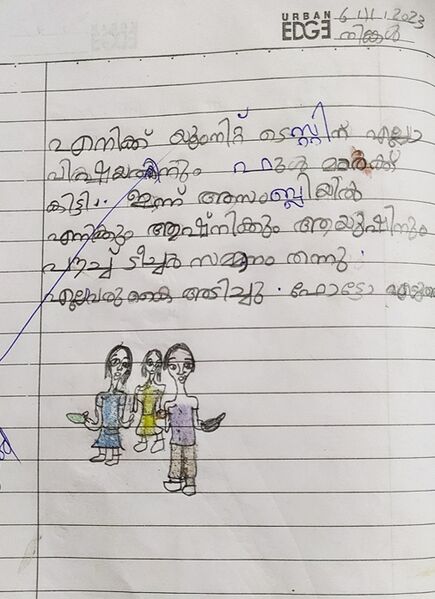 URBAN
EDGE
6.11.2023
തിങ്കൾ
എനിക്ക് യൂണിറ്റ് ടെസ്റ്റിന് എല്ലാ
വിഷയത്തിനും ഫുൾ മാർക്ക്
കിട്ടി. ഇന്ന് അസംബ്ലിയിൽ
എനിക്കും ആഷ്നിക്കും ആയുഷിനും
ടീച്ചർ സമ്മാനം തന്നു.
എല്ലവരു കൈ അടിച്ചു. ഫോട്ടോ